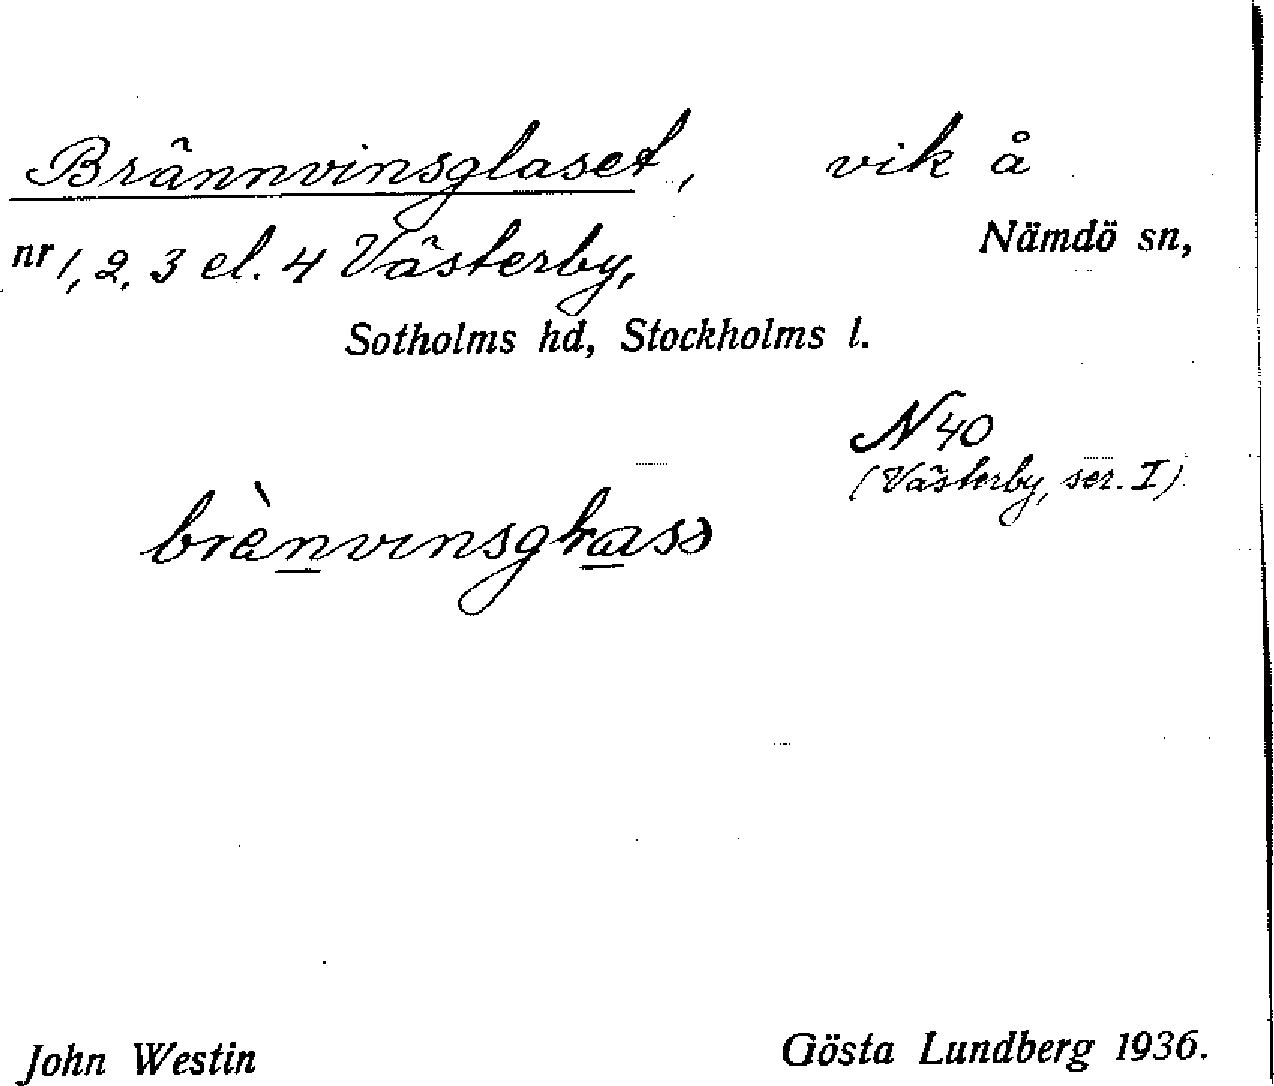 Brännvinsglaset, vik å
Nämdö sn,
nr 1, 2, 3 el. 4 Västerby,
Sotholms hd, Stockholms l.
N 40
(Västerby, ser. I)
John Westin Gösta Lundberg 1936.